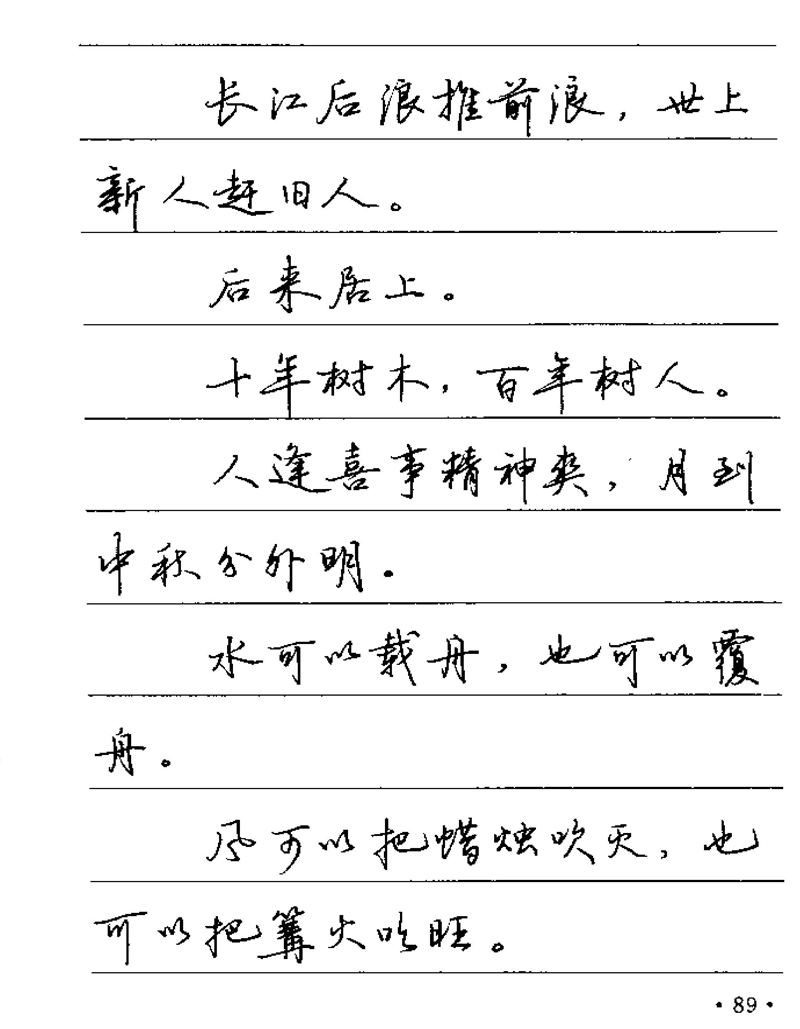 长江后浪推前浪，世上
新人赶旧人。
后来居上。
十年树木，百年树人。
人逢喜事精神爽，月到
中秋分外明。
水可以载舟，也可以覆
舟。
风可以把蜡烛吹灭，也
可以把篝火吹旺。
·89·